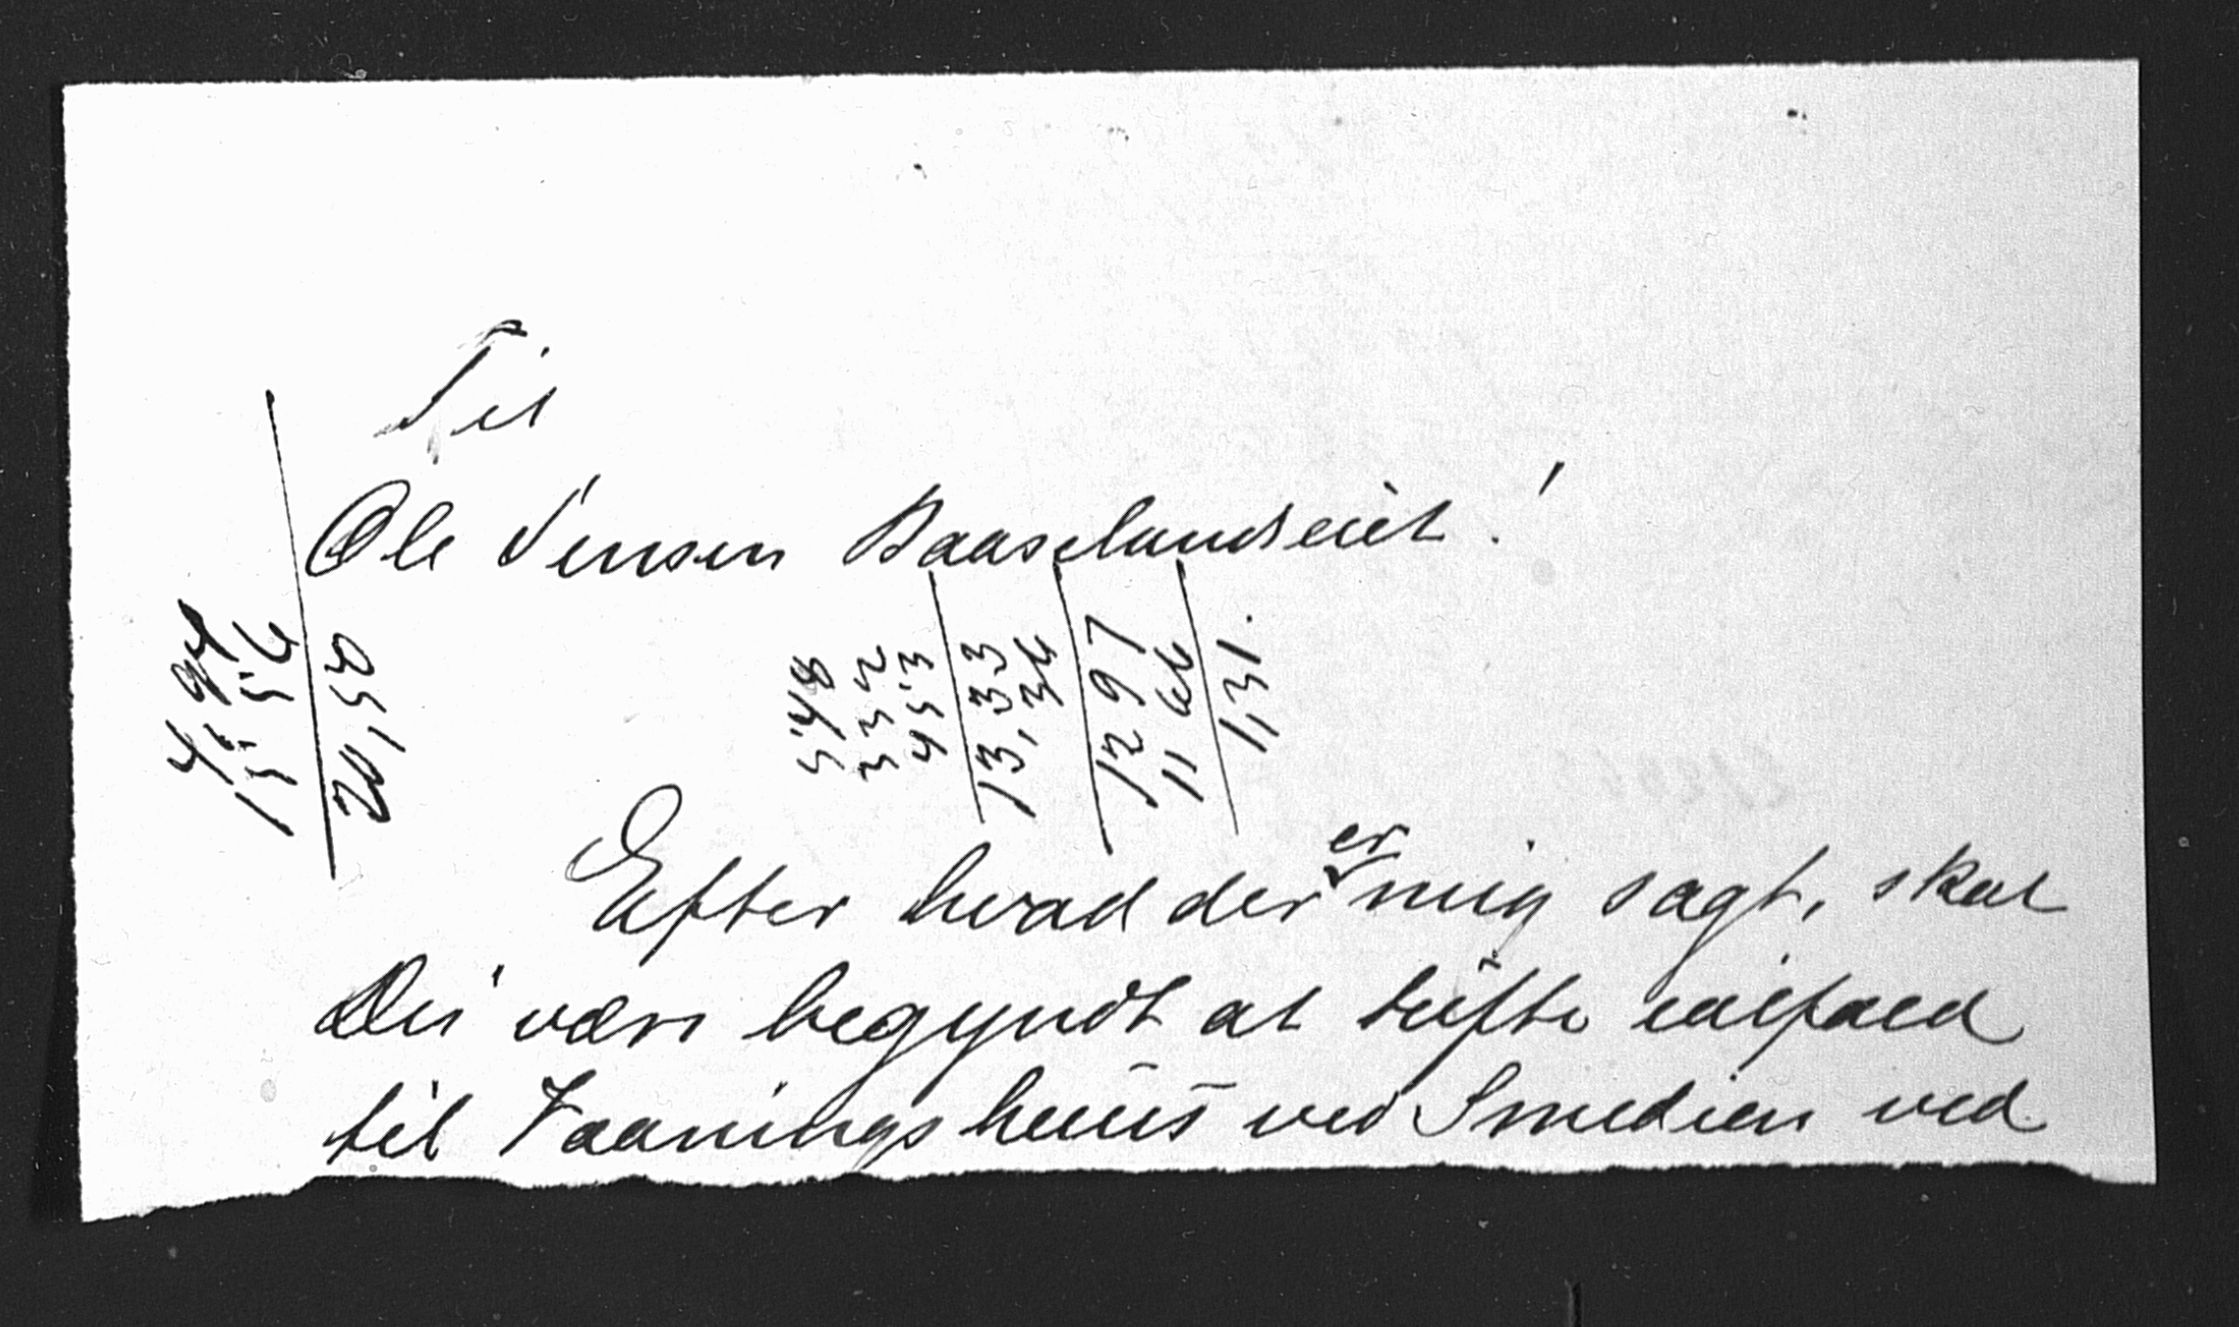 Til
Ole Jensen Baaselandseiet!
4,94
15,56
20,50
548
332
453
13,33
13,36
1297
11 66
1,31.
Efter hvad der er mig sagt, skal
Du være begyndt at tufte ialfald
til Vaaningshuus ved Smedien ved